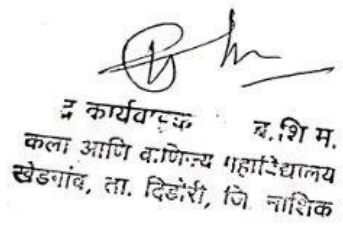 कार्यवाहक ब.शि म.
कला आणि वाणिज्य महाविद्यालय
खेडगांव, ता. दिंडोरी, जि नाशिक